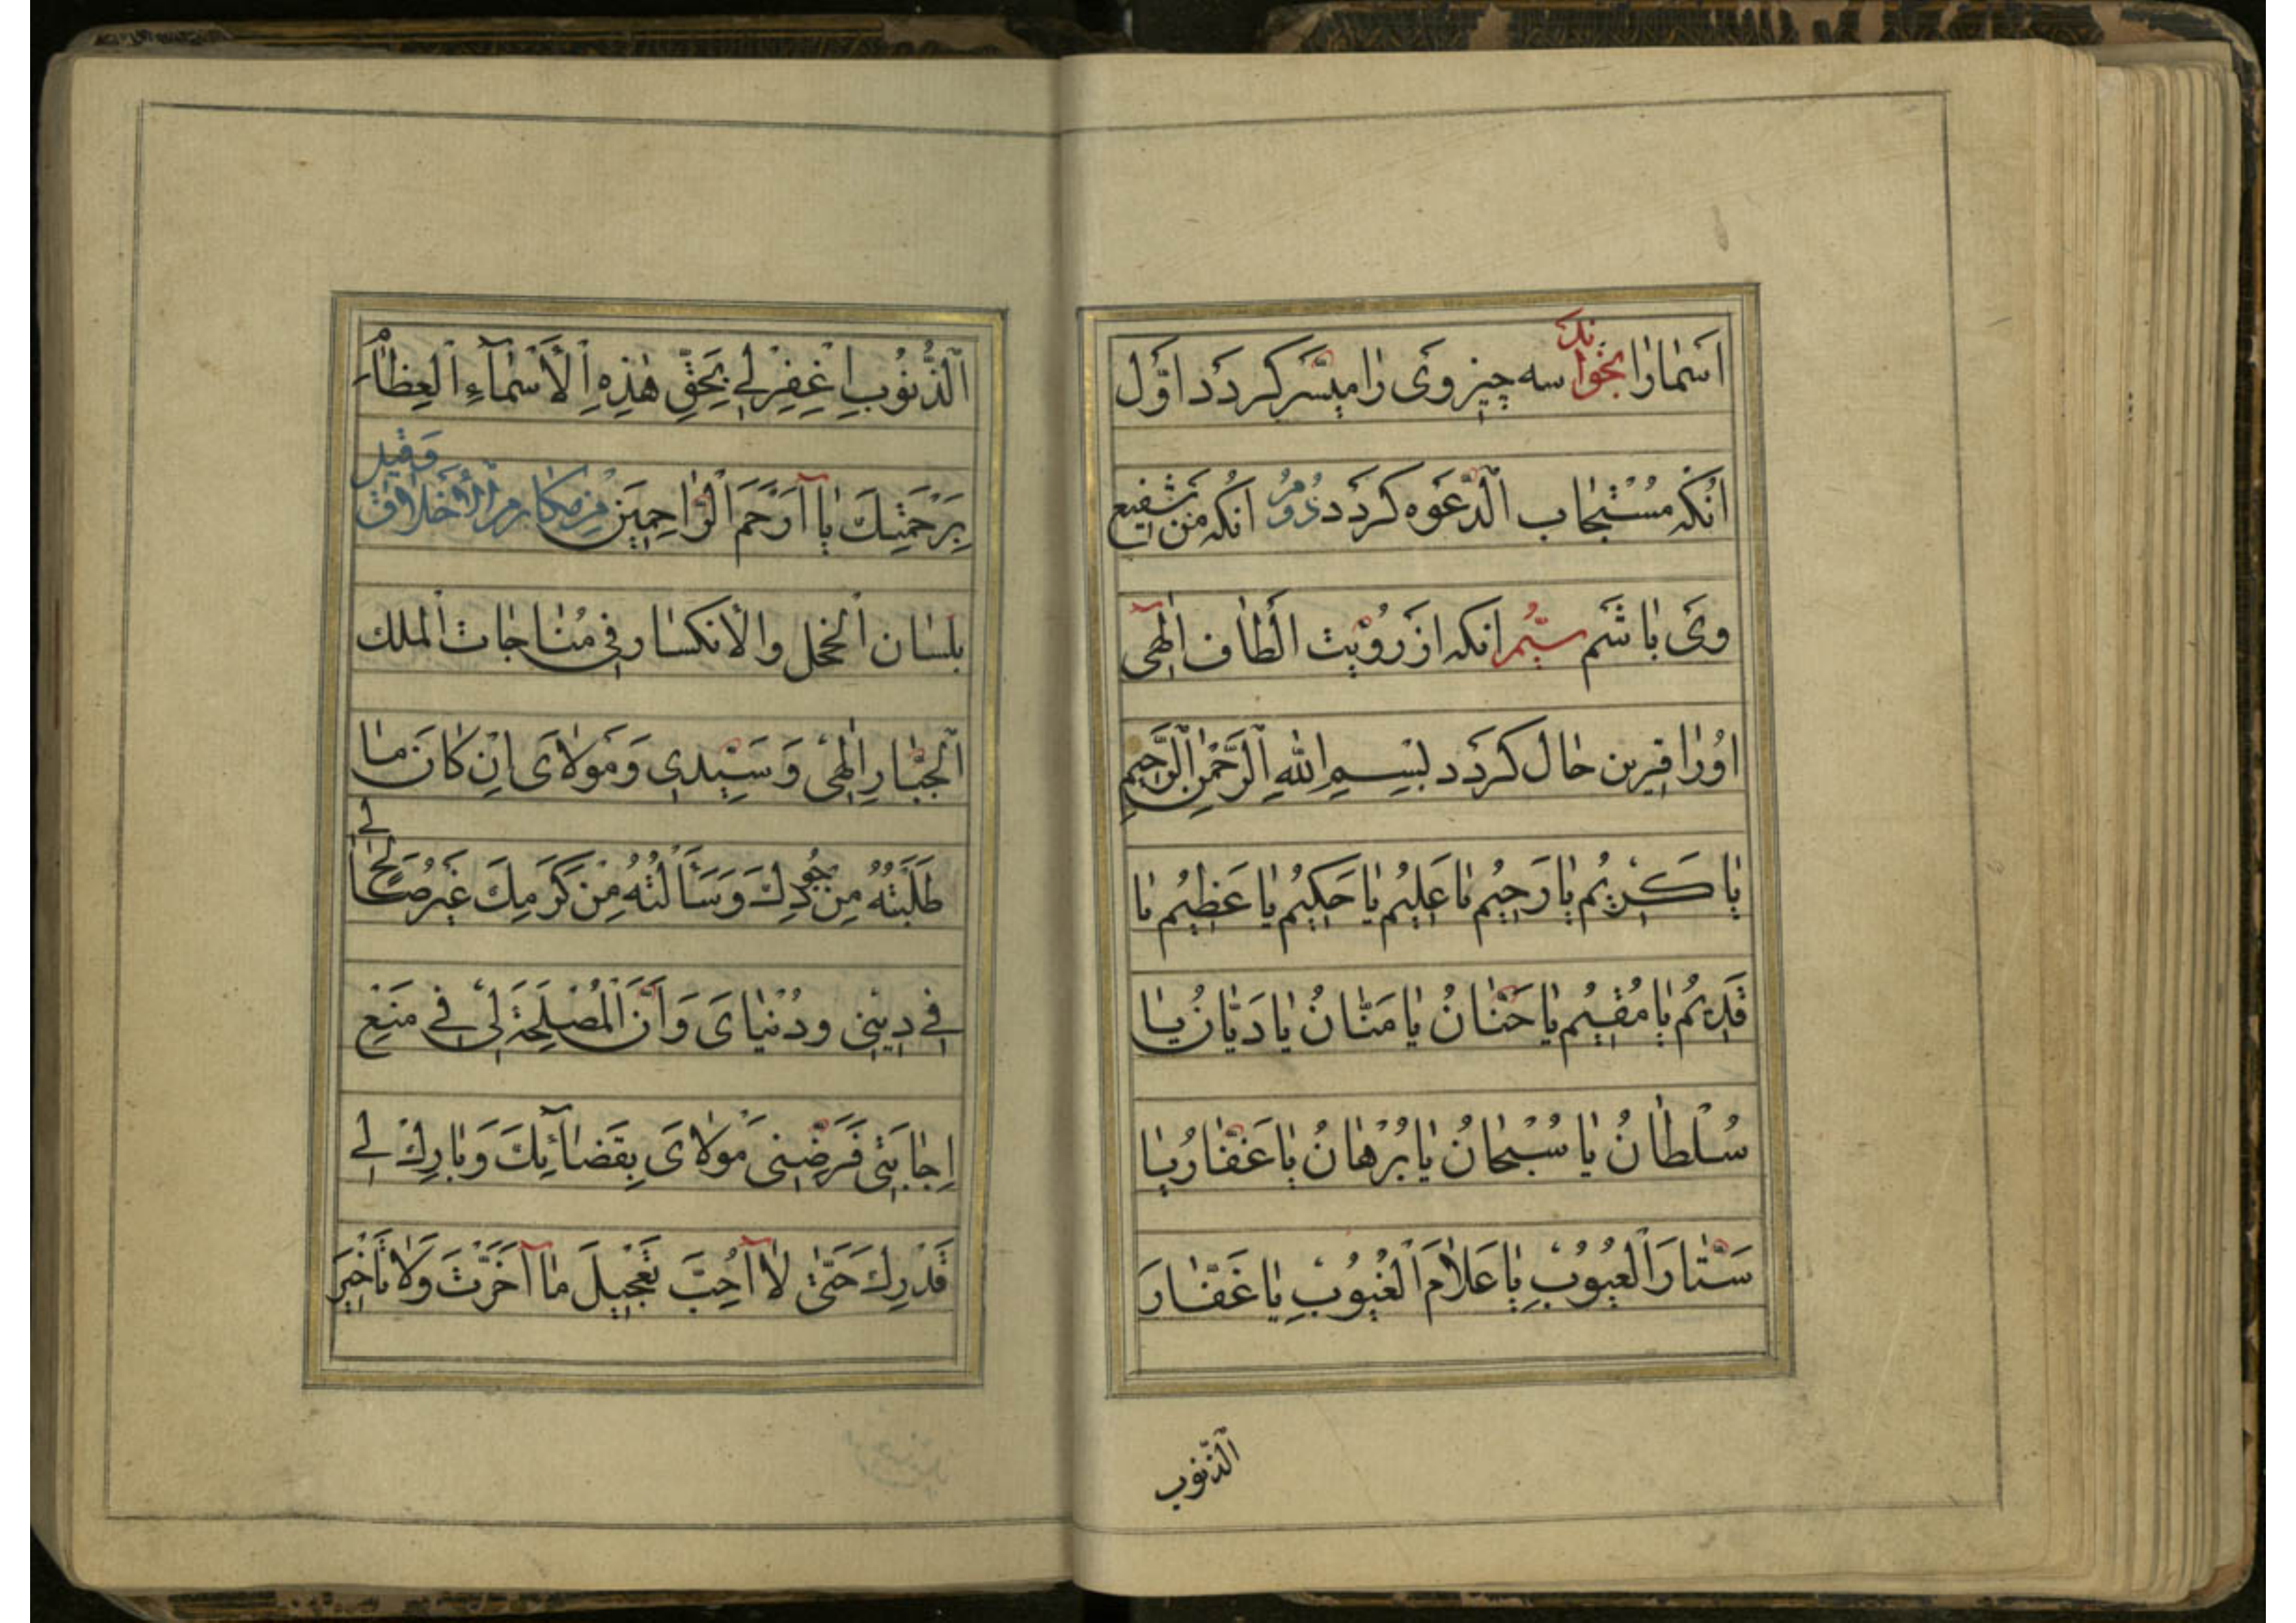 اَسْمارا بخواند سه چیز وَی را میسّر کردَد اوّل
انکه مُسْتَجاب الدّعَوه کردَد دُوُم انکه مَن شفیع
وی باشَم سیُّم انکه ازَ رُؤیت الْطاف الٰهی
اوُرا قرین حال کردَد بِسْمِ اللهِ الرَّحْمٰنِ الرَّحِيمِ
يا كَرْيمُ يا رَحِيْمُ يا عَلِيْمُ يا حَكِيْمُ يا عَظِيْمُ يا
قَدِيْمُ يا مُقِيْمُ يا حَنّانُ يا مَنّانُ يا دَيّانُ يا
سُلْطانُ يا سُبْحانُ يا بُرْهانُ يا غَفّارُ يا
سَتّارَ الْعُيُوْبِ يا عَلّامَ الْغُيُوْبِ يا غَفّارَ
الذّنوب
الذُّنُوْبِ اِغْفِرْلي بِحَقِّ هٰذِهِ الْأَسْمآءِ الْعِظامِ
بِرَحْمَتِكَ يا آاَرْحَمَ الرّاحِمِيَن مِن مكارم الْأَخلاقْ وَقيل
بلسَان الخجل والأنكسار في مُناجات الملك
الْجَبّارِ الٰهیْ وَسَيِّدي وَمَوْلايَ اِنْ كانَ ما
طَلَبْتُهُ مِنْ جُوْدِكَ وَسَأَلْتُهُ مِنْ كَرَمِكَ غَيرَ صالِحٍ لي
في دِيني ودُنْيايَ وَاَنَّ الْمَصْلَحَةَ لي في مَنْعِ
اِجابَتي فَرَضِّني مَوْلايَ بِقَضآئِكَ وَبارِكْ لي
قَدْرِكَ حَتّىٰ لا آاُحِبَّ تَعْجِيْلَ ما آاَخَّرْتَ وَلا تَأْخِيْرَ